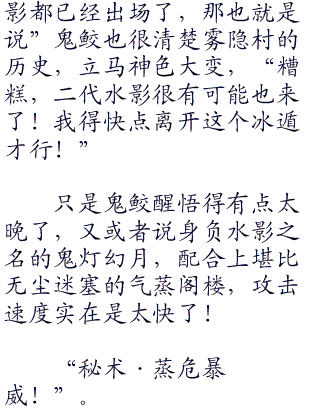 影都已经出场了，那也就是
说”鬼鲛也很清楚雾隐村的
历史，立马神色大变，“糟
糕，二代水影很有可能也来
了！我得快点离开这个冰遁
才行！”
只是鬼鲛醒悟得有点太
晚了，又或者说身负水影之
名的鬼灯幻月，配合上堪比
无尘迷塞的气蒸阁楼，攻击
速度实在是太快了！
“秘术·蒸危暴
威！”。